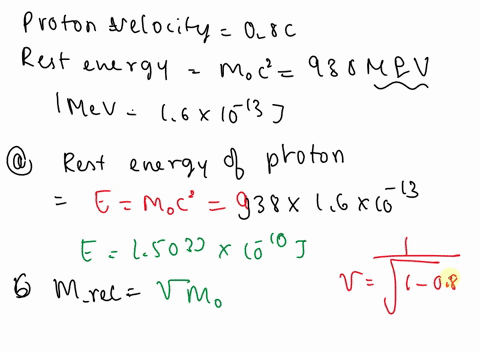 Proton velocity = 0.8c
Rest energy = m₀c² = 938 MeV
1 MeV = 1.6 × 10⁻¹³ J
ⓐ Rest energy of proton
= E = m₀c² = 938 × 1.6 × 10⁻¹³
E = 1.5033 × 10⁻¹⁰ J
b M_rec = γ m₀
γ = 1/√(1 - 0.8